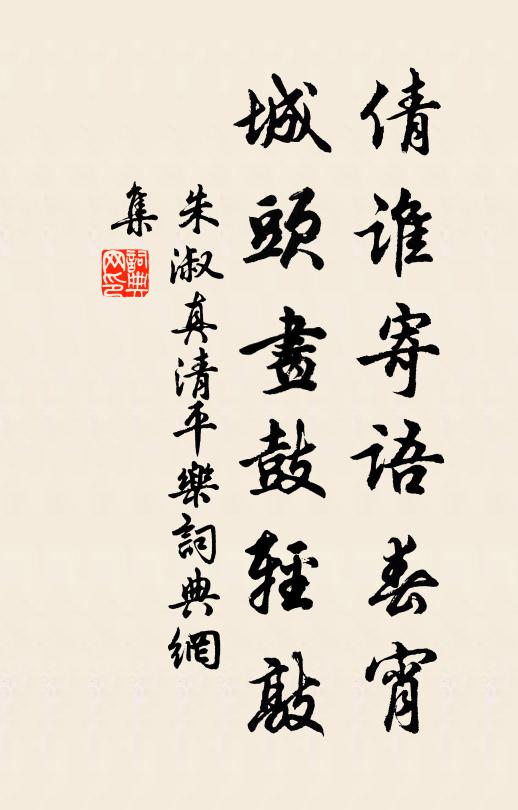 倩誰寄語春宵
城頭畫鼓輕敲
朱淑真清平樂詞典網
集
詞典网印